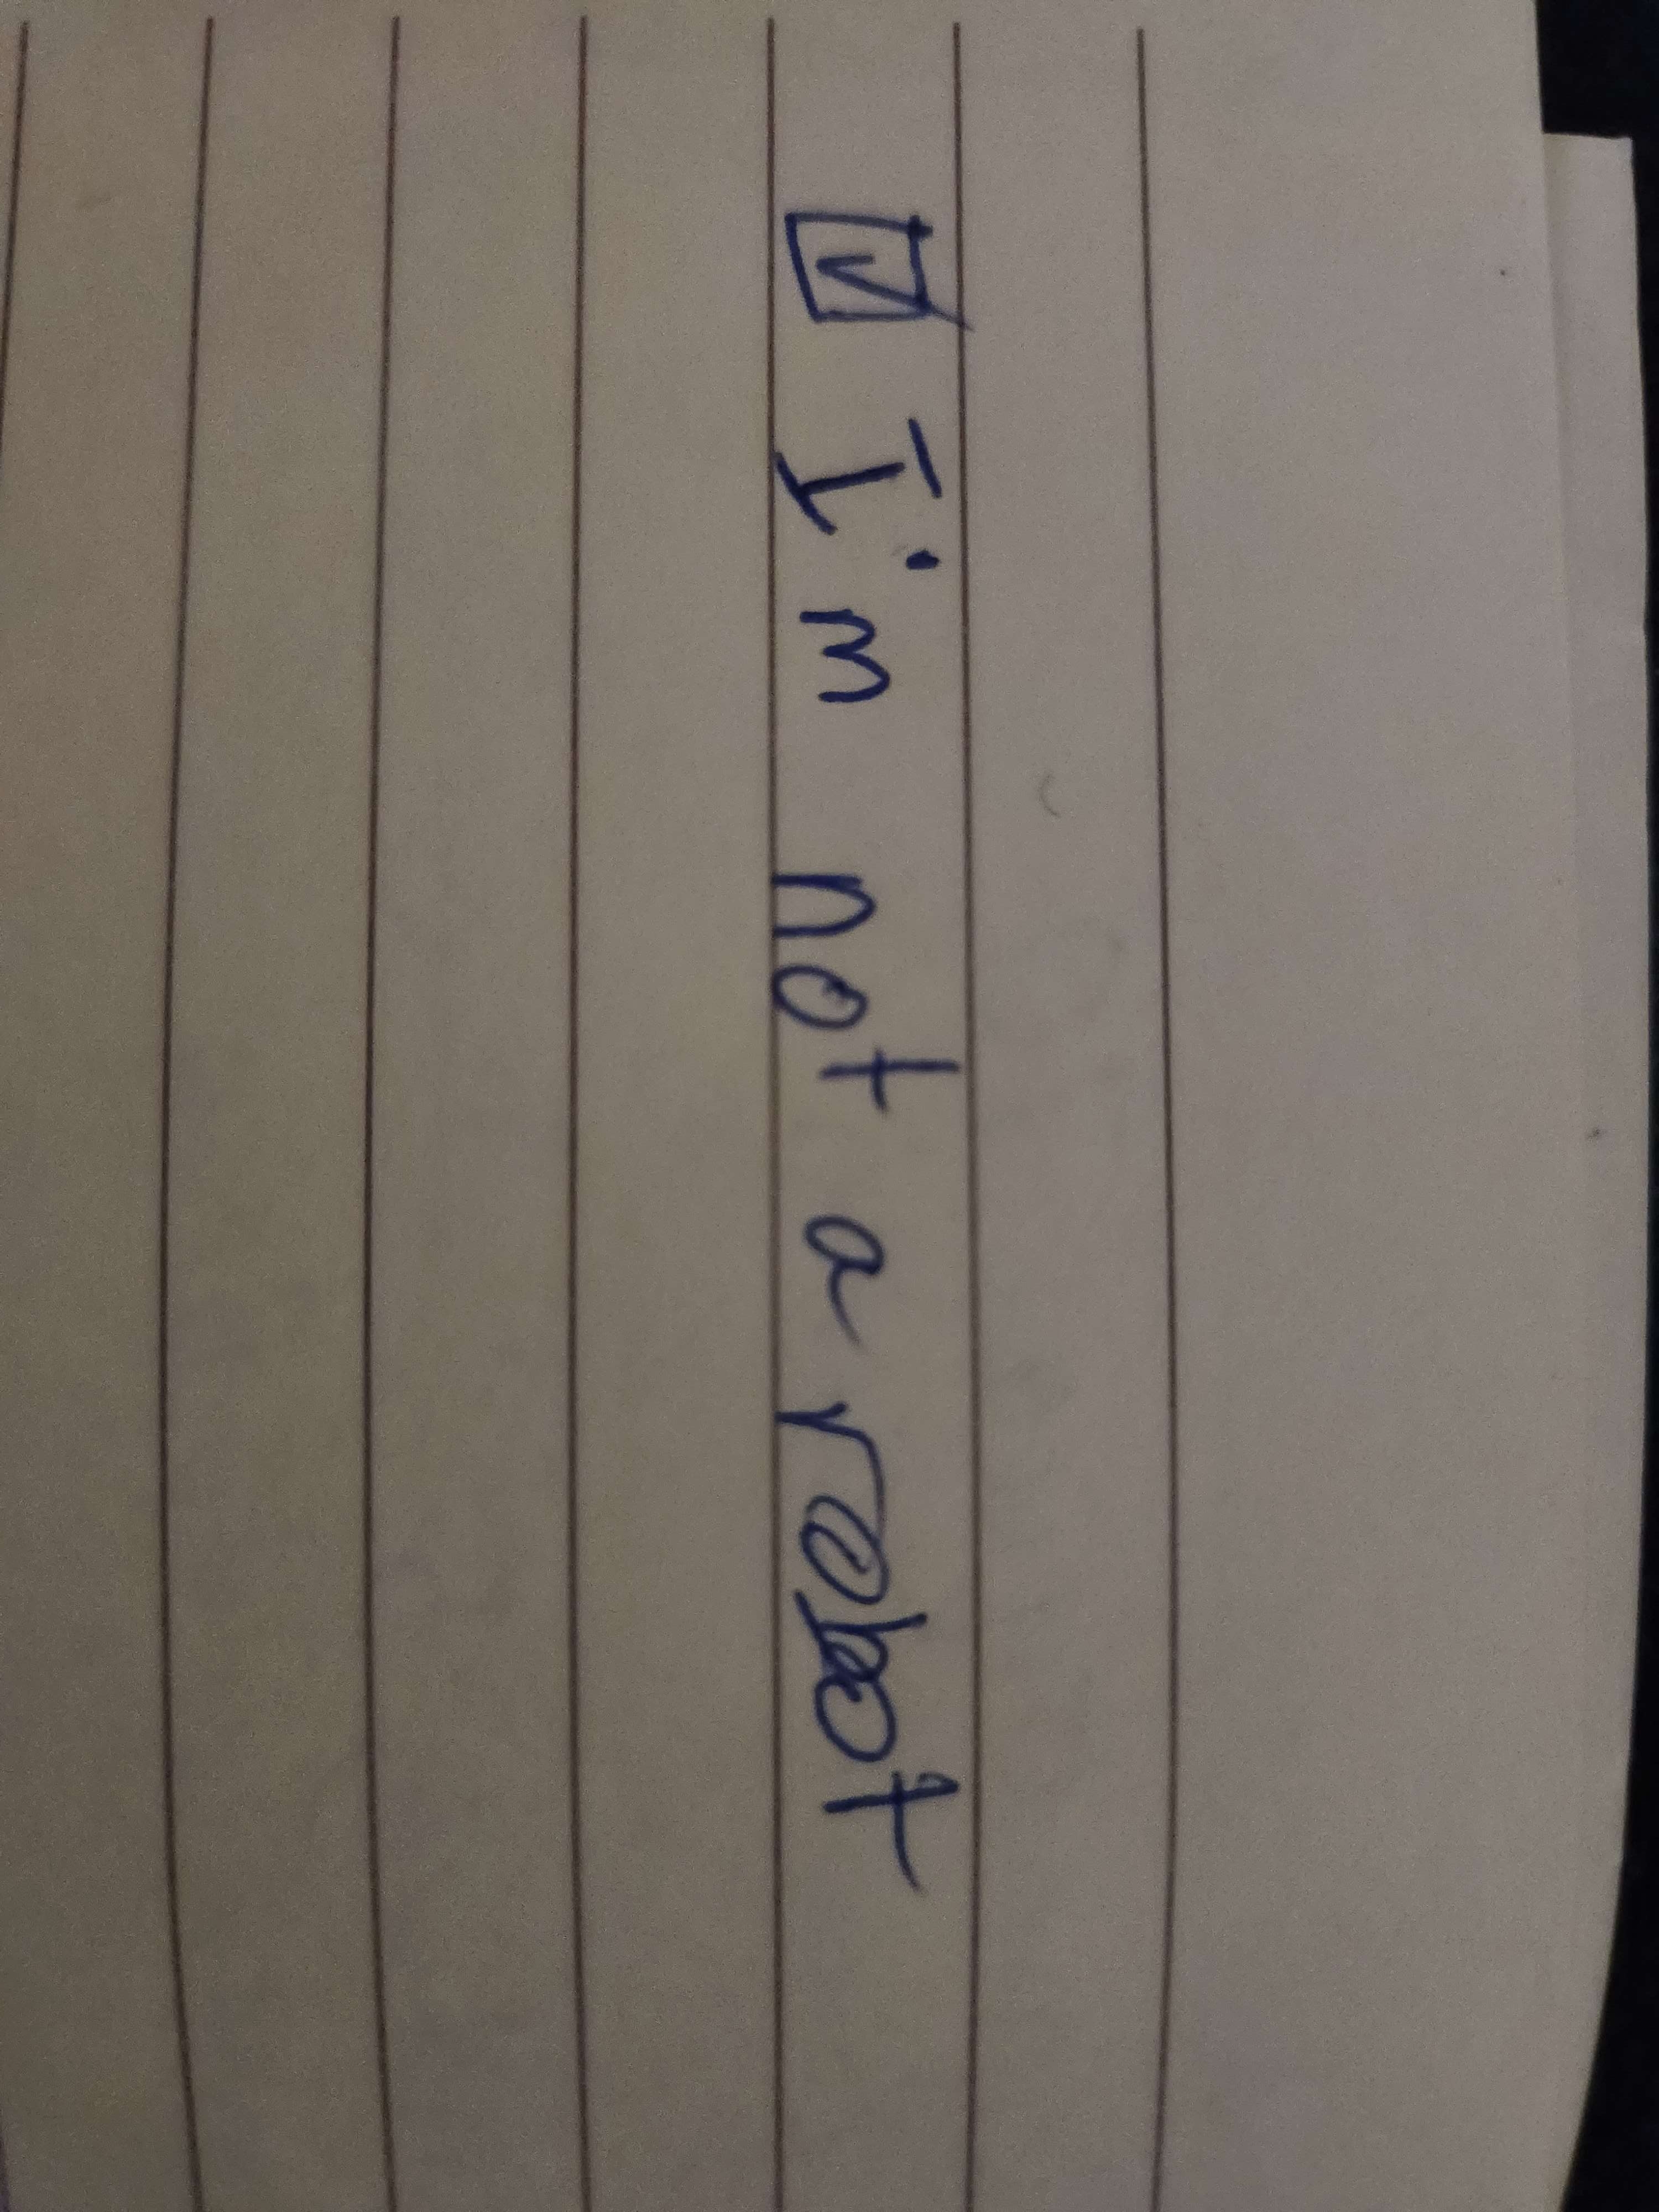 ☑ I'm not a robot